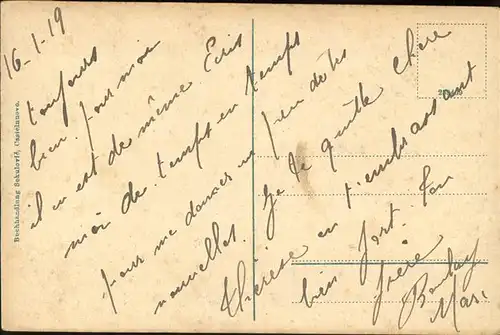 16-1-19
toujours
bien. pour moi
il en est de même. Ecris
moi de temps en temps
pour me donner un peu de tes
nouvelles. Je te quitte Chère
Thérèse en t'embrassant
bien fort. Ton
frère
Buchhandlung Sekulović, Castelnuovo.